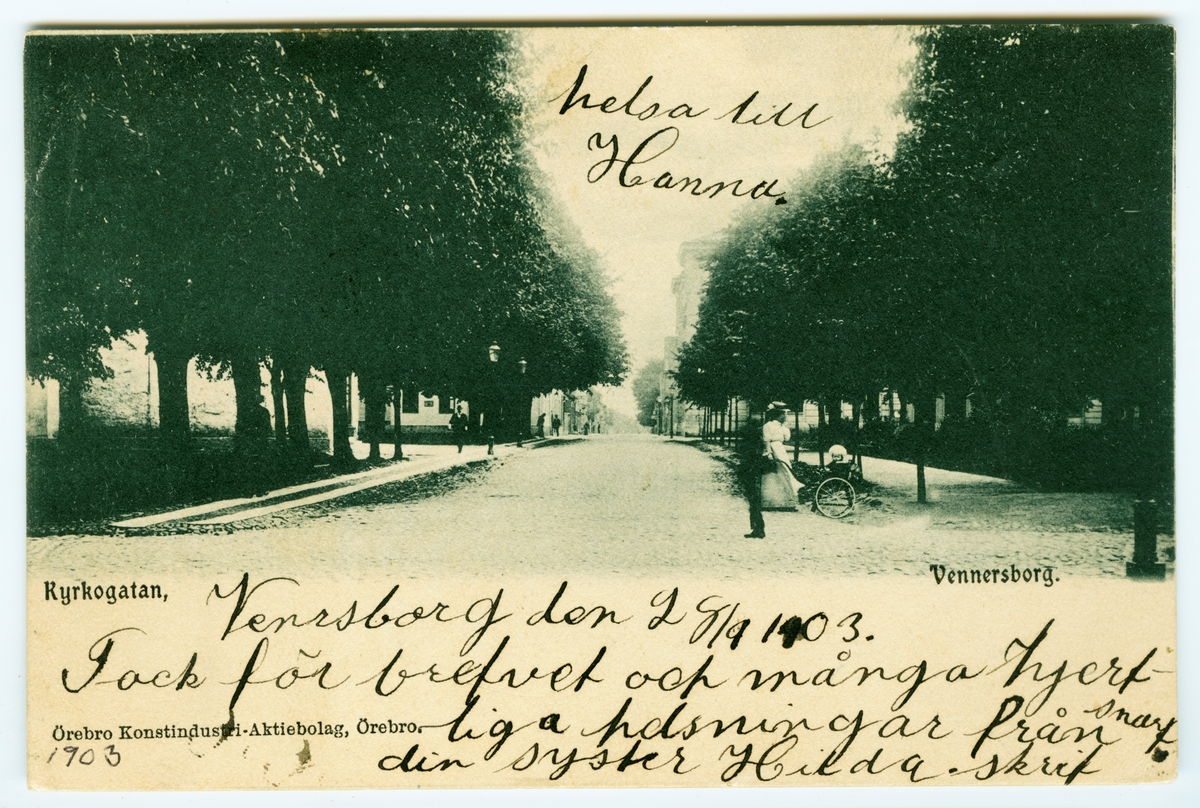 helsa till
Hanna.
Kyrkogatan,
Vennersborg.
Venrsborg den 28/9 1903.
Tack för brefvet och många hjert-
Örebro Konstindustri-Aktiebolag, Örebro.
liga helsningar från
din syster Hilda. skrif
snart.
1903